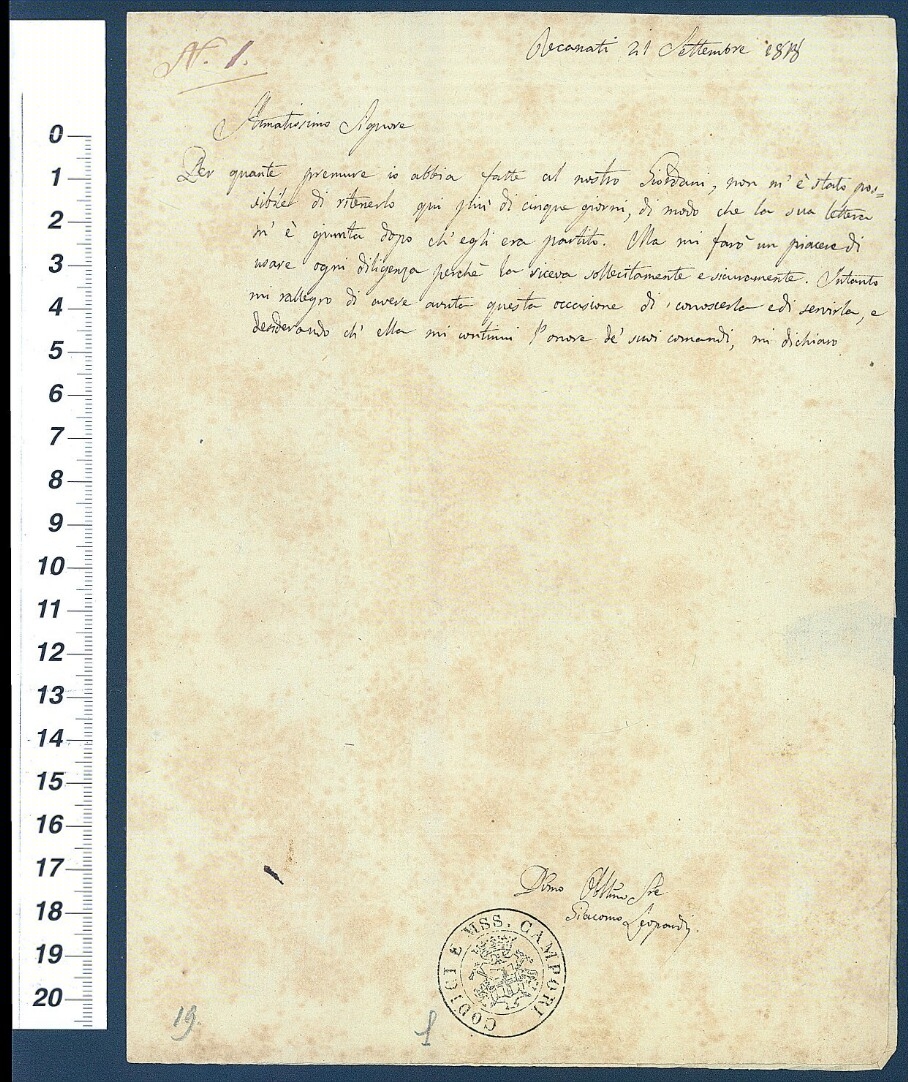 N. 1.
Recanati 21 Settembre 1818
Stimatissimo Signore
Per quante premure io abbia fatte al nostro Giordani, non m'è stato pos=
sibile di ritenerlo qui più di cinque giorni, di modo che la sua lettera
m'è giunta dopo ch'egli era partito. Ma mi farò un piacere di
usare ogni diligenza perchè la riceva sollecitamente e sicuramente. Intanto
mi rallegro di avere avuta questa occasione di conoscerla e di servirla, e
desiderando ch'ella mi continui l'onore de' suoi comandi, mi dichiaro
Dmo Obblmo Sre
Giacomo Leopardi.
CODICI E MSS. CAMPORI
19.
1
0
1
2
3
4
5
6
7
8
9
10
11
12
13
14
15
16
17
18
19
20